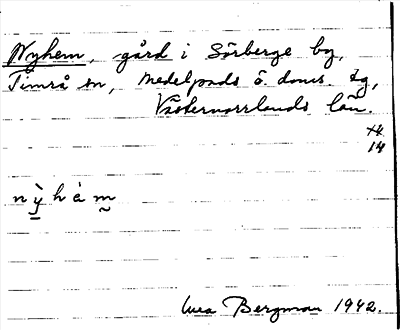 Nyhem, gård i Sörberge by,
Timrå sn, Medelpads ö. doms. tg,
Västernorrlands län.
14
nỳhèm
Bergman 1942.